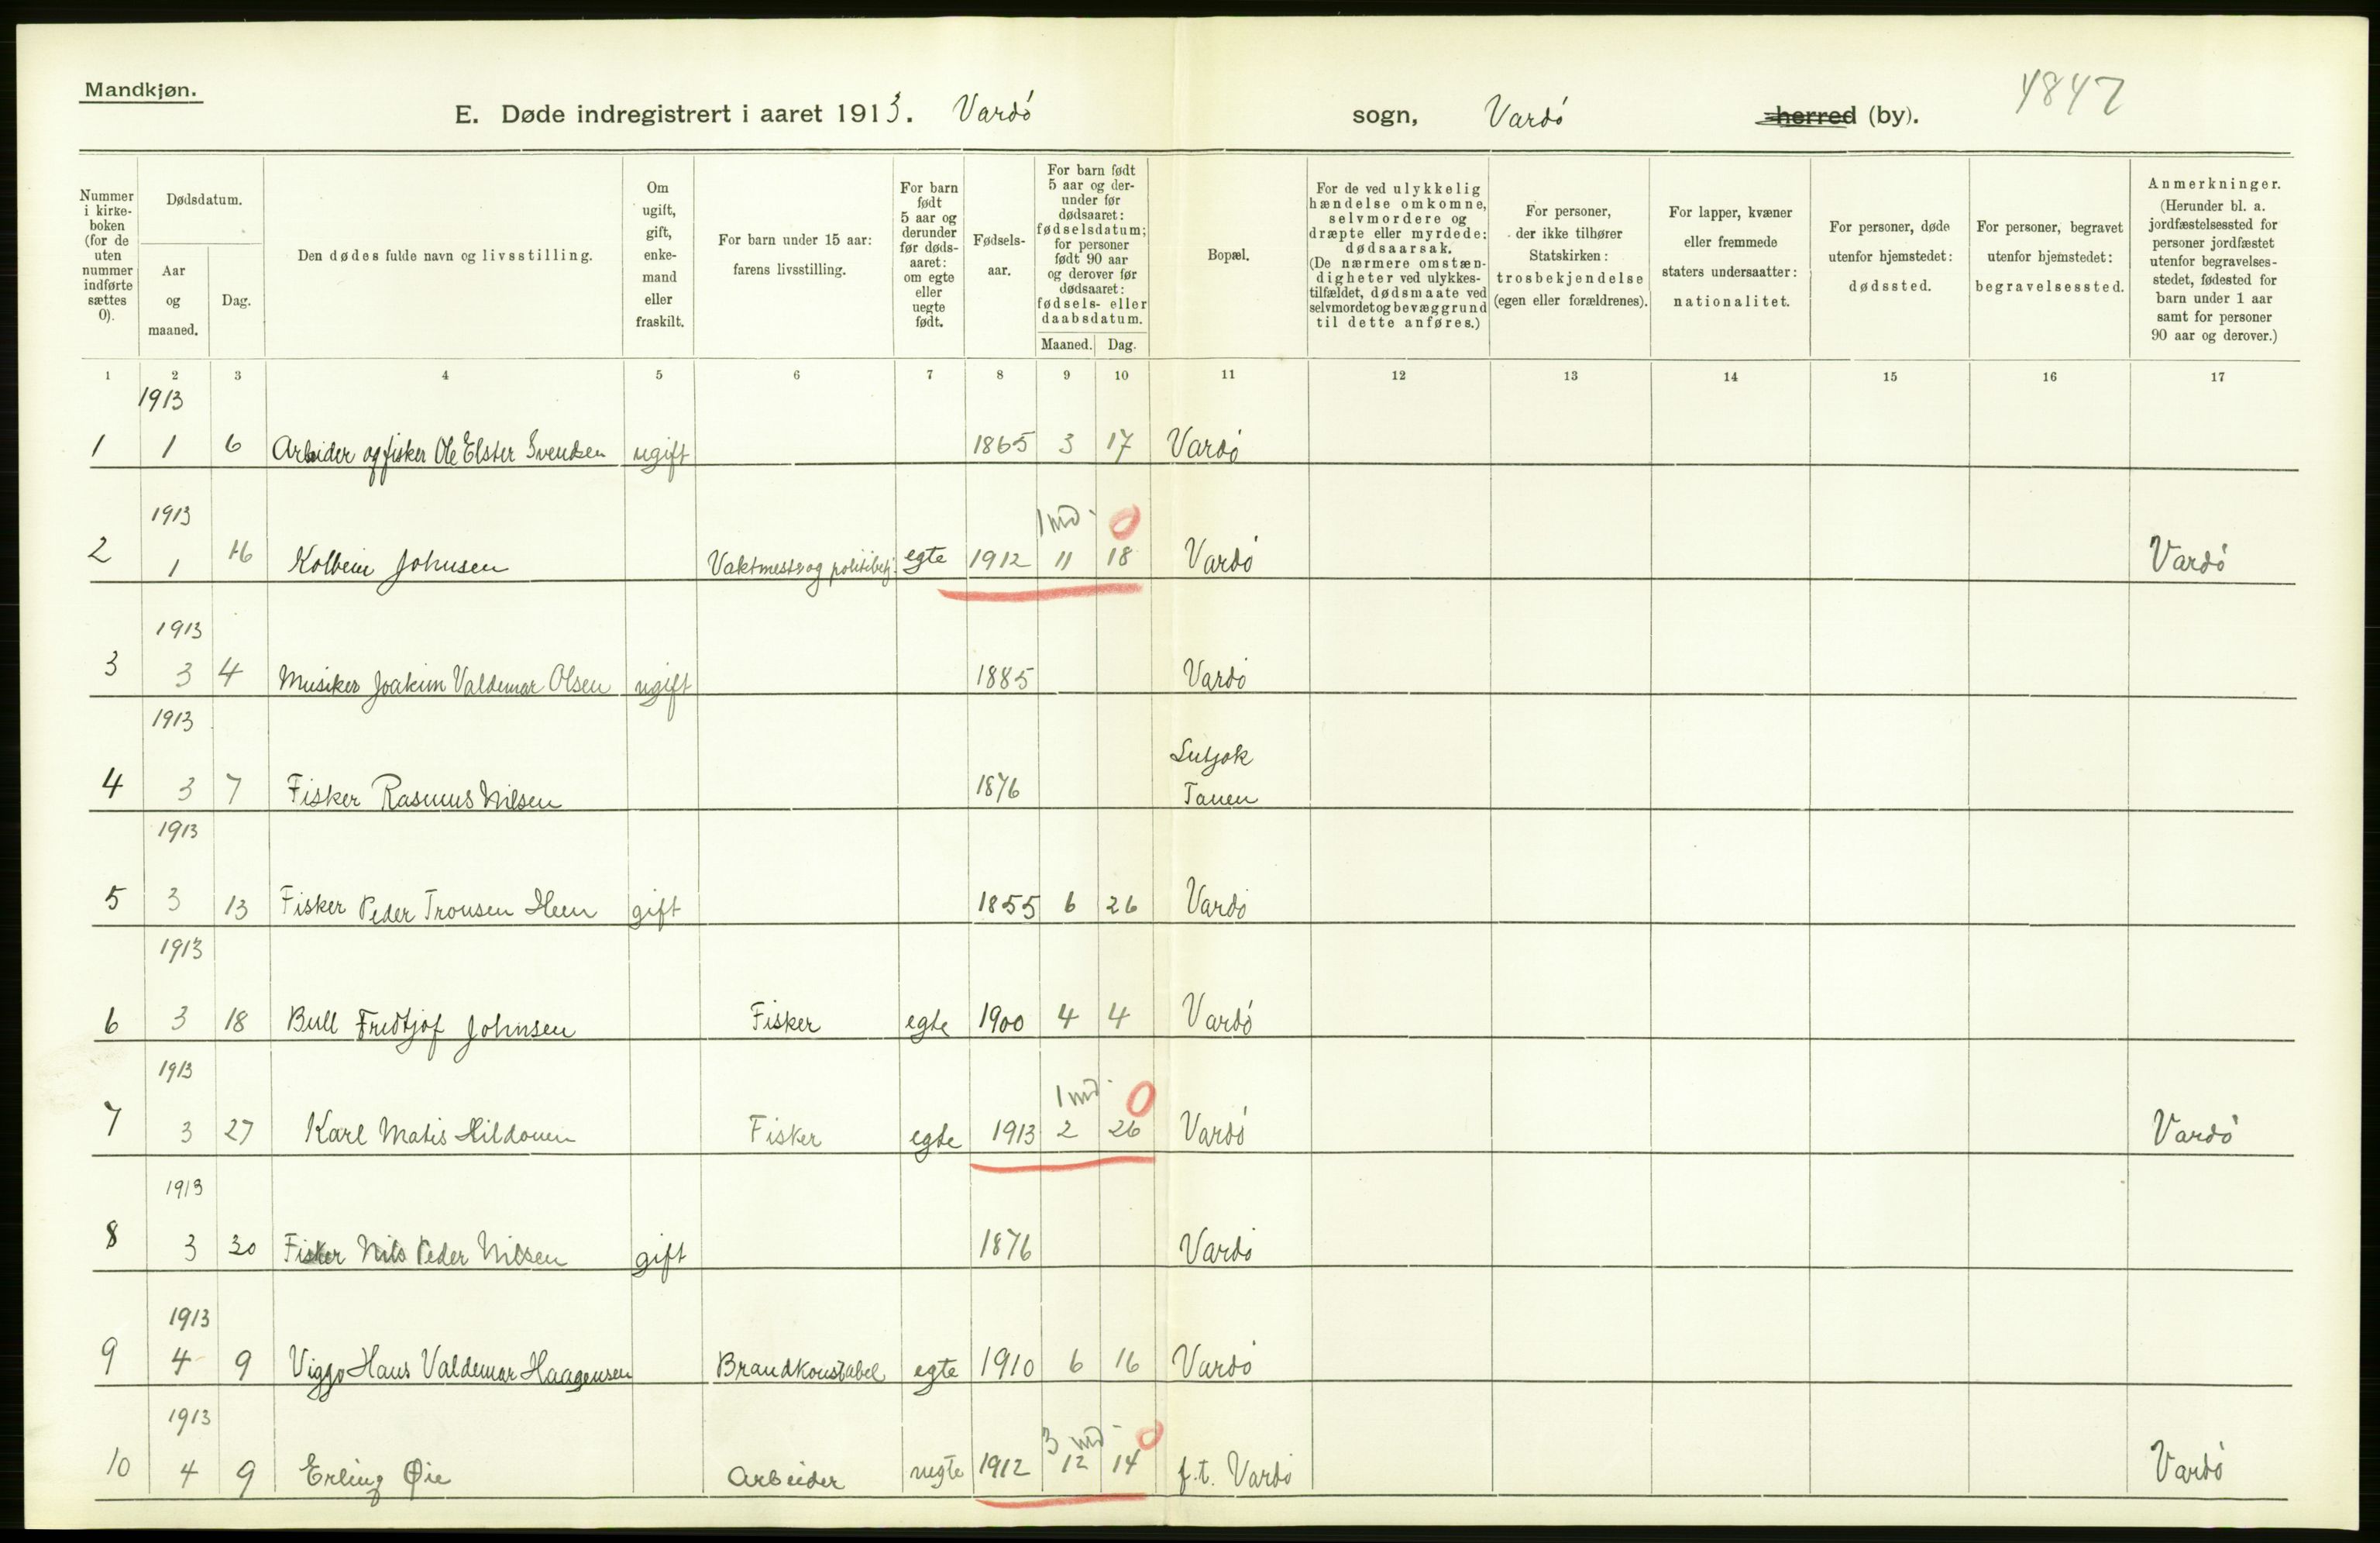 Mandkjøn.
4847
E. Døde indregistrert i aaret 1913. Vardö sogn, Vardö herred (by).
Nummer i kirke-boken (for de uten nummer indførte sættes 0).
Dødsdatum.
Aar og maaned.
Dag.
Den dødes fulde navn og livsstilling.
Om ugift, gift, enke-mand eller fraskilt.
For barn under 15 aar: farens livsstilling.
For barn født 5 aar og derunder før døds-aaret: om egte eller uegte født.
Fødsels-aar.
For barn født 5 aar og der-under før dødsaaret: fødselsdatum; for personer født 90 aar og derover før dødsaaret: fødsels- eller daabsdatum.
Maaned. Dag.
Bopæl.
For de ved ulykkelig hændelse omkomne, selvmordere og dræpte eller myrdede: dødsaarsak. (De nærmere omstæn-digheter ved ulykkes-tilfældet, dødsmaate ved selvmordet og bevæggrund til dette anføres.)
For personer, der ikke tilhører Statskirken: trosbekjendelse (egen eller forældrenes).
For lapper, kvæner eller fremmede staters undersaatter: nationalitet.
For personer, døde utenfor hjemstedet: dødssted.
For personer, begravet utenfor hjemstedet: begravelsessted.
Anmerkninger. (Herunder bl. a. jordfæstelsessted for personer jordfæstet utenfor begravelses-stedet, fødested for barn under 1 aar samt for personer 90 aar og derover.)
1 2 3 4 5 6 7 8 9 10 11 12 13 14 15 16 17
1913
1 1 6 Arbeider og fisker Ole Elster Svendsen ugift 1865 3 17 Vardö
1913 1 md 0
2 1 16 Kolbein Johnsen Vaktmester og politibetj. egte 1912 11 18 Vardö Vardö
1913
3 3 4 Musiker Joakim Valdemar Olsen ugift 1885 Vardö
1913
4 3 7 Fisker Rasmus Nilsen 1876 Tanen
1913
5 3 13 Fisker Peder Tronsen Heen gift 1855 6 26 Vardö
1913
6 3 18 Bull Fridtjof Johnsen Fisker egte 1900 4 4 Vardö
1913 1 md 0
7 3 27 Karl Matis Hildonen Fisker egte 1913 2 26 Vardö Vardö
1913
8 3 30 Fisker Nils Peder Nilsen gift 1876 Vardö
1913
9 4 9 Viggo Hans Valdemar Haagensen Brandkonstabel egte 1910 6 16 Vardö
1913 3 md 0
10 4 9 Erling Øie Arbeider uegte 1912 12 14 f.t. Vardö Vardö